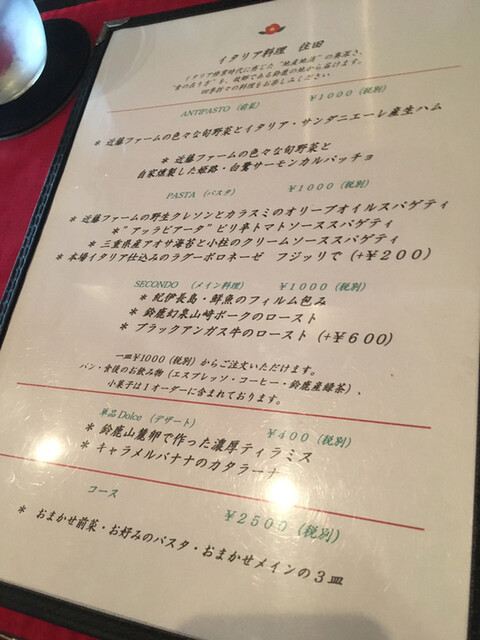 イタリア料理 住田
イタリア修業時代に感じた "地産地消" の奥深さ、
"食の在り方" を、故郷である鈴鹿の地から届けます。
四季折々の料理をお楽しみください
ANTIPASTO (前菜) ¥1000 (税別)
* 近藤ファームの色々な旬野菜とイタリア・サンダニエーレ産生ハム
* 近藤ファームの色々な旬野菜と
自家燻製した姫路・白鷺サーモンカルパッチョ
PASTA (パスタ) ¥1000 (税別)
* 近藤ファームの野生クレソンとカラスミのオリーブオイルスパゲティ
* "アッラビアータ" ピリ辛トマトソーススパゲティ
* 三重県産アオサ海苔と小柱のクリームソーススパゲティ
* 本場イタリア仕込みのラグーボロネーゼ フジッリで (+¥200)
SECONDO (メイン料理) ¥1000 (税別)
* 紀伊長島・鮮魚のフィルム包み
* 鈴鹿幻泉山崎ポークのロースト
* ブラックアンガス牛のロースト (+¥600)
一皿¥1000 (税別) からご注文いただけます。
パン・食後のお飲み物 (エスプレッソ・コーヒー・鈴鹿産緑茶)、
小菓子は1オーダーに含まれております。
単品 Dolce (デザート) ¥400 (税別)
* 鈴鹿山麓卵で作った濃厚ティラミス
* キャラメルバナナのカタラーナ
コース ¥2500 (税別)
* おまかせ前菜・お好みのパスタ・おまかせメインの3皿